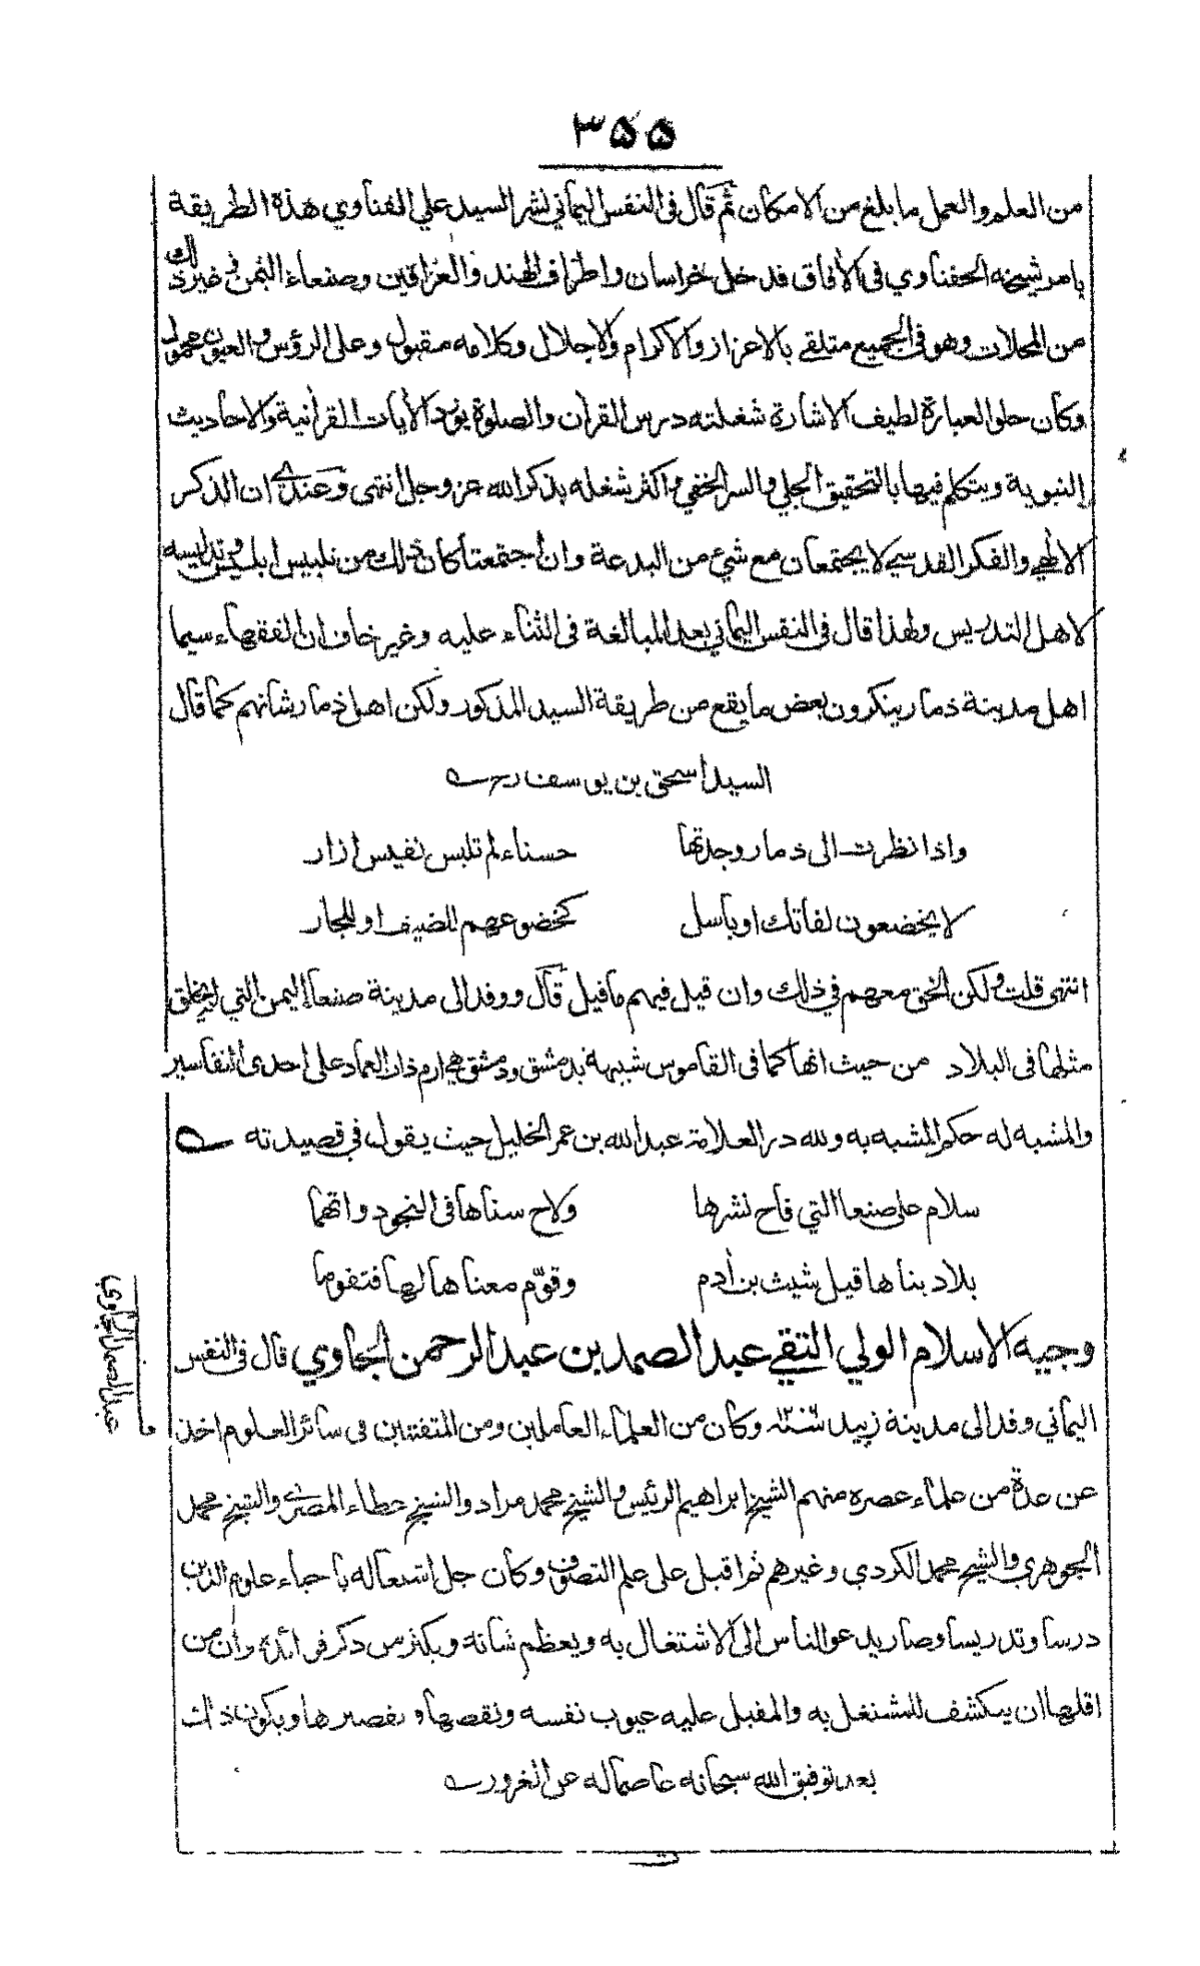 ٣٥٥
من العلم والعمل ما بلغ من الامكان ثم قال فى النفس اليماني نشر السيد علي القناوي هذه الطريقة
بامر شيخه الحفناوي فى الآفاق فدخل خراسان واطراف الهند والعراقين وصنعاء اليمن وغير ذلك
من المحلات وهو فى الجميع متلقى بالاعزاز والاكرام والاجلال وكلامه مقبول وعلى الرؤس والعيون محمول
وكان حلو العبارة لطيف الاشارة شغلته درس القرآن والصلوة يورد الآيات القرآنية والاحاديث
النبوية ويتكلم فيها بالتحقيق الجلي والسر الخفي واكثر شغله بذكر الله عز وجل انتهى وعندي ان الذكر
الالهي والفكر القدسي لا يجتمعان مع شيء من البدعة وان اجتمعتا كان ذلك من تلبيس ابليس وتدليسه
لاهل التدريس ولهذا قال فى النفس اليماني بعد المبالغة فى الثناء عليه وغير خاف ان الفقهاء سيما
اهل مدينة ذمار ينكرون بعض ما يقع من طريقة السيد المذكور ولكن اهل ذمار شانهم كما قال
السيد اسحق بن يوسف رح
واذا نظرت الى ذمار وجدتها حسناء لم تلبس نفيس ازار
لا يخضعون لفاتك او باسل كخضوعهم للضيف او للجار
انتهى قلت ولكن الحق معهم في ذلك وان قيل فيهم ما قيل قال ووفد الى مدينة صنعا اليمن التي لم يخلق
مثلها فى البلاد من حيث انها كما فى القاموس شبيهة بدمشق ودمشق هي ارم ذات العماد على احدى التفاسير
والمشبه له حكم المشبه به ولله در العلامة عبد الله بن عمر الخليل حيث يقول في قصيدته
سلام على صنعا التي فاح نشرها ولاح سناها فى النجود واتهما
بلاد بناها قيل شيث بن آدم وقوّم معناها لها فتقوما
وجيه الاسلام الولي التقي عبد الصمد بن عبد الرحمن الجاوي قال فى النفس
اليماني وفد الى مدينة زبيد سنة وكان من العلماء العاملين ومن المتفننين فى سائر العلوم اخذ
عن عدة من علماء عصره منهم الشيخ ابراهيم الرئيس والشيخ محمد مراد والشيخ عطاء المصري والشيخ محمد
الجوهري والشيخ محمد الكردي وغيرهم ثم اقبل على علم التصوف وكان جل اشتغاله باحياء علوم الدين
درسا وتدريسا وصار يدعو الناس الى الاشتغال به ويعظم شانه ويكثر من ذكر فوائده وان من
اقلها ان يكشف للمشتغل به والمقبل عليه عيوب نفسه ونقصها وتقصيرها ويكون ذلك
بعد توفيق الله سبحانه عاصما له عن الغرور
عبد الصمد الجاوي